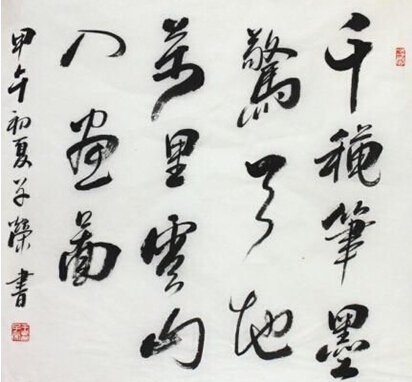 千種筆墨
驚天地
萬里雲山
入畫圖
甲午初夏 榮書